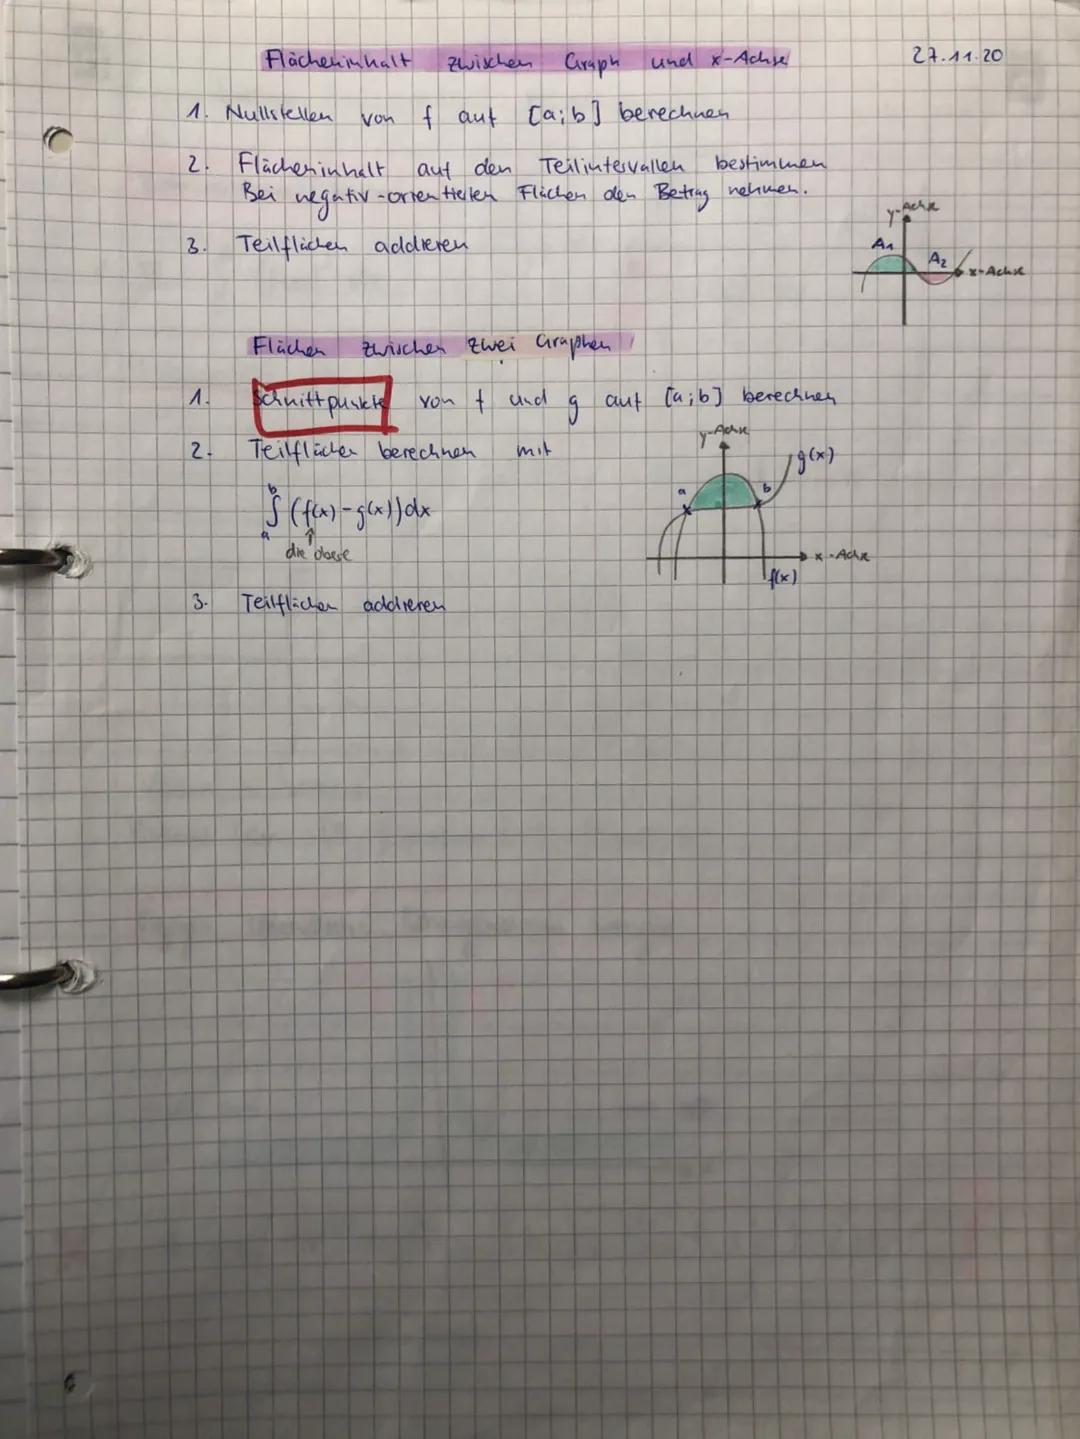 Flächeninhalt zwischen Graph und x-Achse 27.11.20
1. Nullstellen von f auf [a;b] berechnen
2. Flächeninhalt auf den Teilintervallen bestimmen
Bei negativ-orientierten Flächen den Betrag nehmen.
3. Teilflächen addieren
y-Achse
A1
A2
x-Achse
Flächen zwischen zwei Graphen
1. Schnittpunkte von f und g auf [a;b] berechnen
2. Teilflächen berechnen mit
b
∫ (f(x)-g(x))dx
a
↑
die obere
y-Achse
g(x)
a b
x-Achse
f(x)
3. Teilflächen addieren